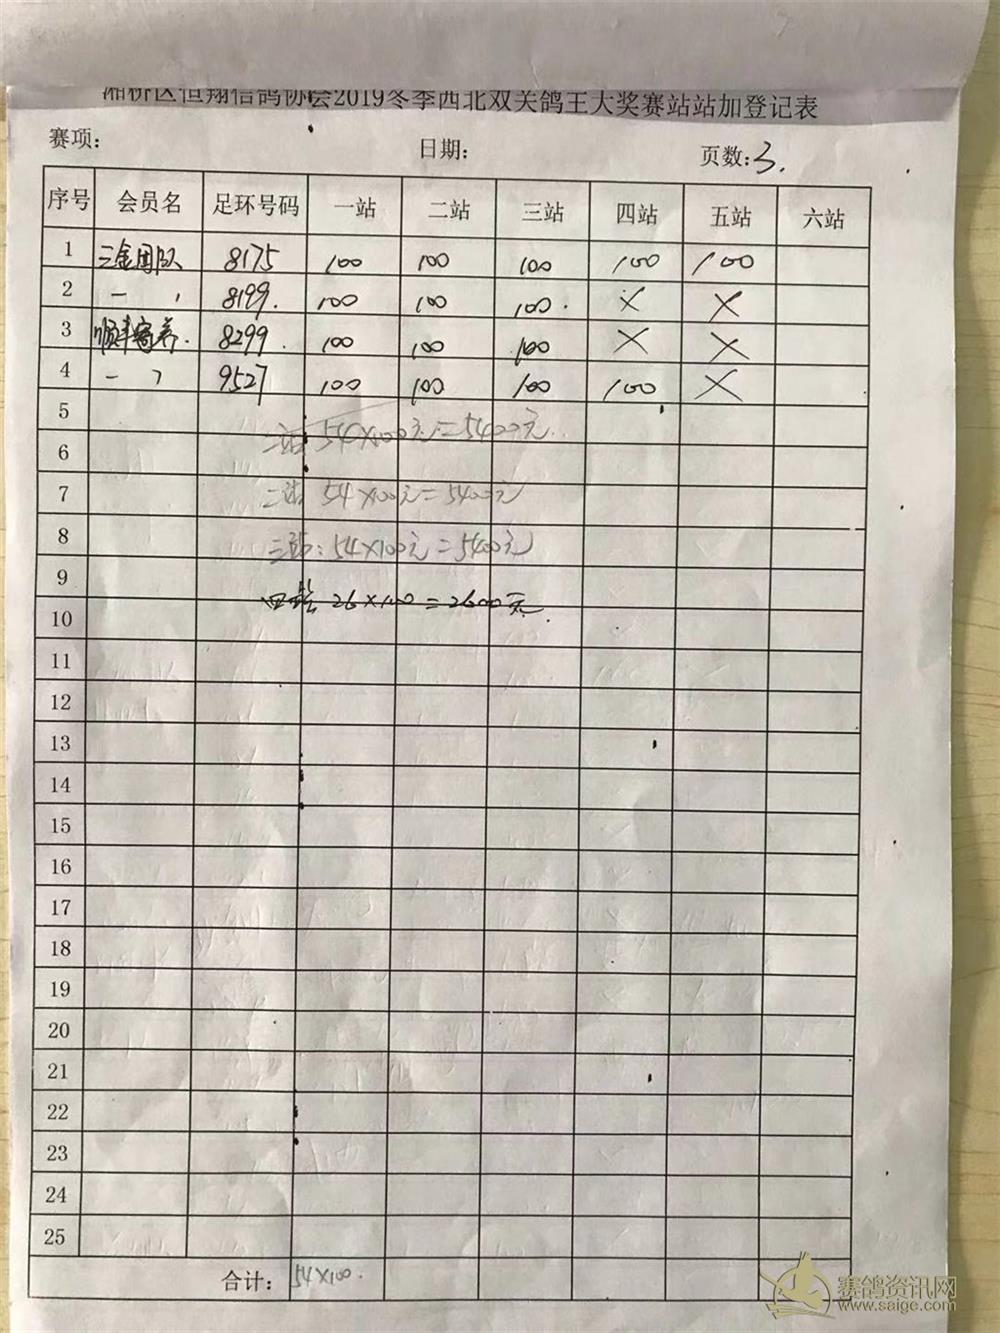 湘桥区恒翔信鸽协会2019冬季西北双关鸽王大奖赛站站加登记表
赛项: 日期: 页数:3.
序号 会员名 足环号码 一站 二站 三站 四站 五站 六站
1 三金团队 8175 100 100 100 100 100
2 一 , 8199. 100 100 100. × ×
3 顺丰寄养. 8299. 100 100 100 × ×
4 一 , 9527 100 100 100 100 ×
5
6 54×100元=5400元.
7 54×100元=5400元
8 三站:54×100元=5400元
9 四站 26×100=2600元.
10
11
12
13
14
15
16
17
18
19
20
21
22
23
24
25
合计: 54×100.
赛鸽资讯网
www.saige.com